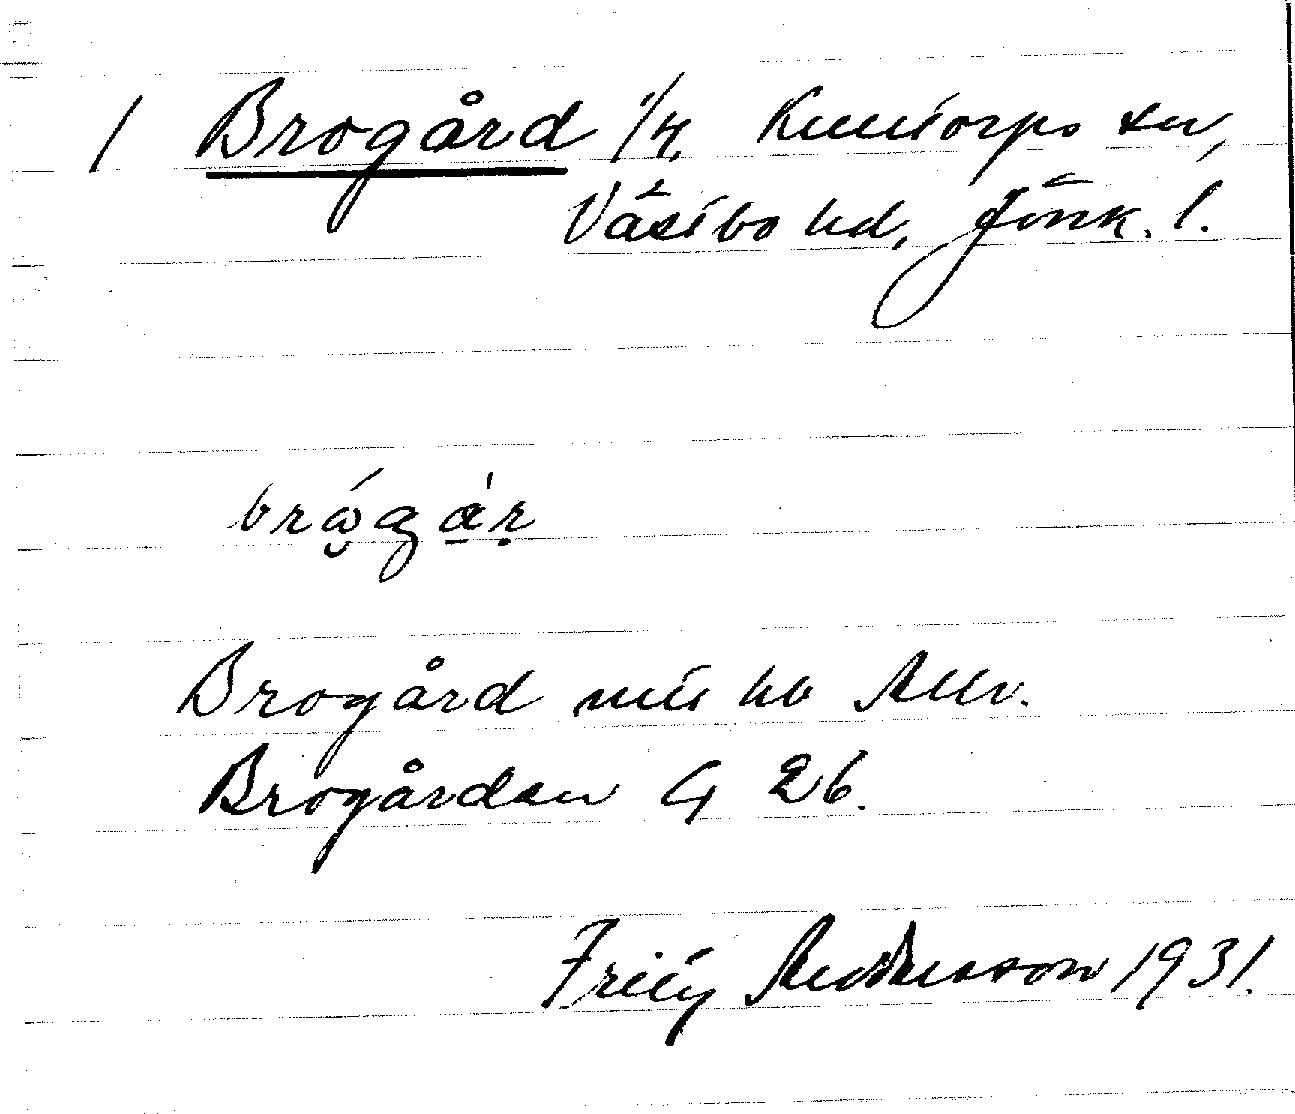 1 Brogård 1/4, Kulltorps sn,
Västbo hd, Jönk. l.
brǫ́gá̱ṛ
Brogård mtl hb
Brogården G 26.
Fritz Andersson 1931.